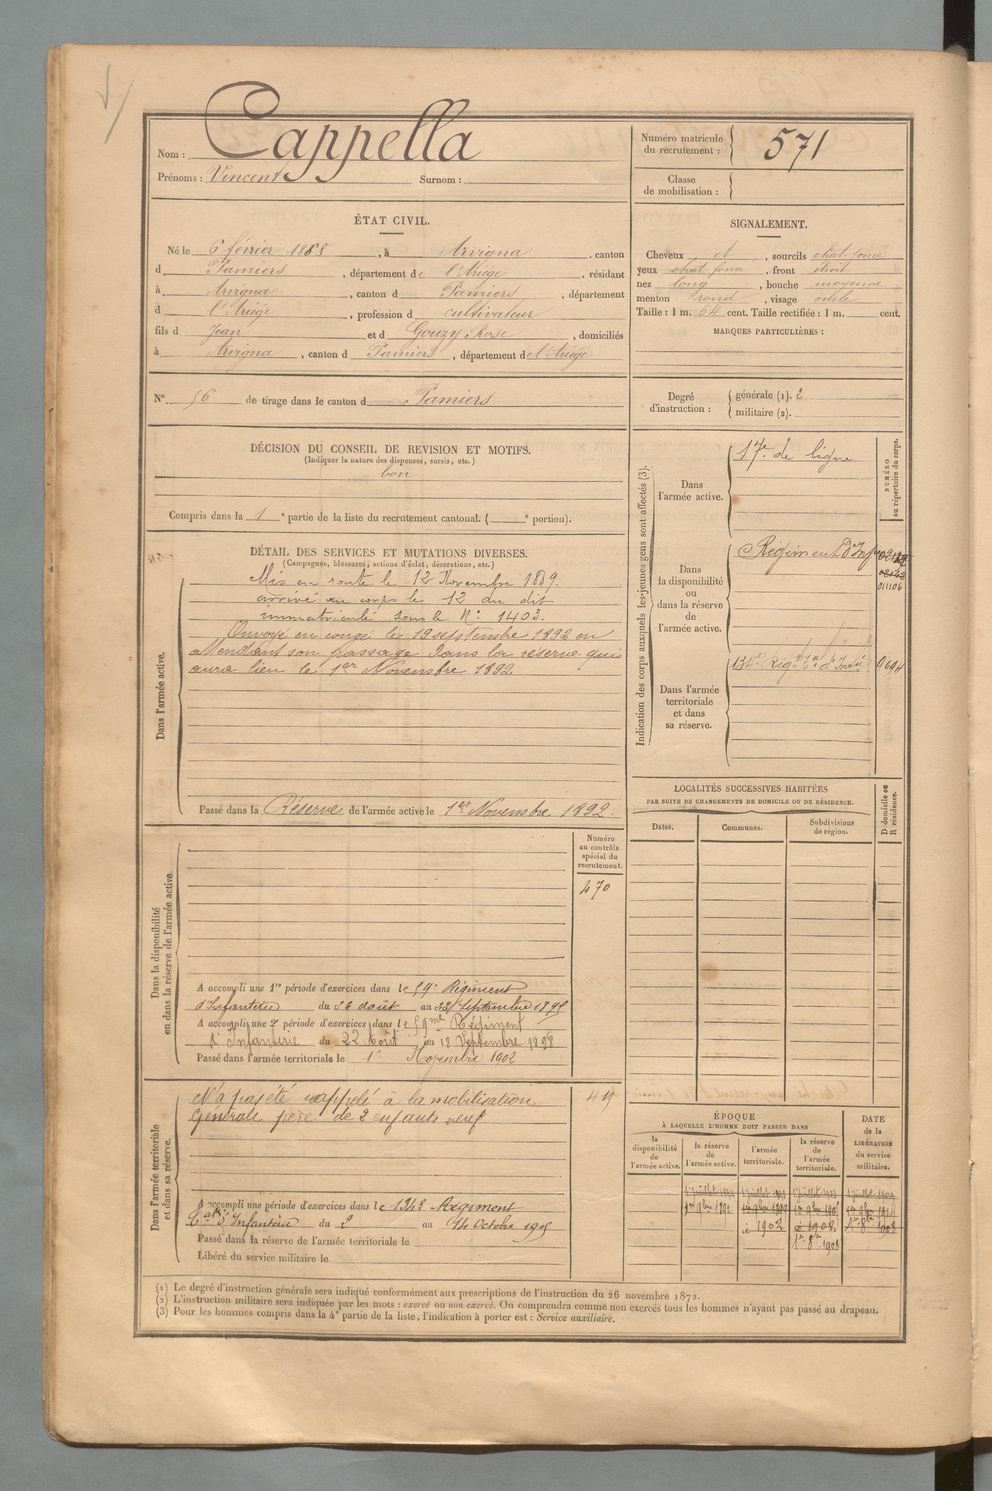 Nom : Cappella
Prénoms : Vincent Surnom :
Numéro matricule du recrutement : 571
Classe de mobilisation :
ÉTAT CIVIL.
Né le 6 février 1868, à Arvigna, canton
d Pamiers, département de l'Ariège, résidant
à Arvigna, canton d Pamiers, département
d l'Ariège, profession d cultivateur
fils d Jean et d Gouzy Rose, domiciliés
à Arvigna, canton d Pamiers, département de l'Ariège
SIGNALEMENT.
Cheveux et, sourcils chat. foncé
yeux chat foncé, front étroit
nez long, bouche moyenne
menton rond, visage ovale
Taille : 1 m. 64 cent. Taille rectifiée : 1 m. cent.
MARQUES PARTICULIÈRES :
N° 56 de tirage dans le canton d Pamiers
Degré d'instruction :
générale (1). 2
militaire (2).
DÉCISION DU CONSEIL DE REVISION ET MOTIFS.
(Indiquer la nature des dispenses, sursis, etc.)
bon
Compris dans la 1e partie de la liste du recrutement cantonal. ( e portion).
DÉTAIL DES SERVICES ET MUTATIONS DIVERSES.
(Campagnes, blessures, actions d'éclat, décorations, etc.)
Dans l'armée active.
Mis en route le 12 Novembre 1889.
arrivé au corps le 12 du dit
immatriculé sous le N° 1403.
Envoyé en congé le 19 septembre 1892 en
attendant son passage dans la réserve qui
aura lieu le 1er Novembre 1892
Passé dans la Réserve de l'armée active le 1er Novembre 1892.
Indication des corps auxquels les jeunes gens sont affectés (3).
NUMÉRO au répertoire du corps.
Dans l'armée active.
17e de ligne
Dans la disponibilité ou dans la réserve de l'armée active.
Régiment d'Inf
011106
Dans l'armée territoriale et dans sa réserve.
134e Régt Tal d'Infie
LOCALITÉS SUCCESSIVES HABITÉES
PAR SUITE DE CHANGEMENTS DE DOMICILE OU DE RÉSIDENCE.
Dates. Communes. Subdivisions de région. D domicile ou R résidence.
Dans la disponibilité ou dans la réserve de l'armée active.
Numéro au contrôle spécial du recrutement.
470
A accompli une 1re période d'exercices dans le 59e Régiment
d'Infanterie du 26 août au 22 Septembre 1895
A accompli une 2e période d'exercices dans le 59me Régiment
d'Infanterie du 22 Août au 18 Septembre 1898
Passé dans l'armée territoriale le 1er Novembre 1902
Dans l'armée territoriale et dans sa réserve.
N'a pas été rappelé à la mobilisation
Générale père de 2 enfants veuf
A accompli une période d'exercices dans le 134e Régiment
Tal d'Infanterie du 2 au 14 Octobre 1905
Passé dans la réserve de l'armée territoriale le
Libéré du service militaire le
ÉPOQUE
À LAQUELLE L'HOMME DOIT PASSER DANS
la disponibilité de l'armée active.
la réserve de l'armée active.
l'armée territoriale.
la réserve de l'armée territoriale.
DATE de la LIBÉRATION du service militaire.
(1) Le degré d'instruction générale sera indiqué conformément aux prescriptions de l'instruction du 26 novembre 1872.
(2) L'instruction militaire sera indiquée par les mots : exercé ou non exercé. On comprendra comme non exercés tous les hommes n'ayant pas passé au drapeau.
(3) Pour les hommes compris dans la 4e partie de la liste, l'indication à porter est : Service auxiliaire.